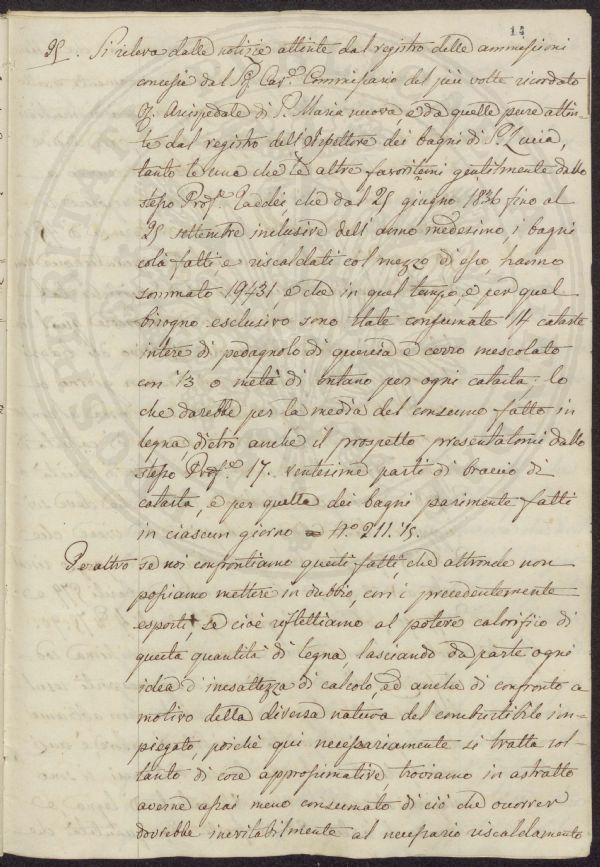 14
25. Si rileva dalle notizie attinte dal registro delle ammissioni
concesse dal Sig. Cav.e Commissario del più volte ricordato
Arcispedale di S. Maria nuova, e da quelle pure attin-
te dal registro dell'Ispettore dei bagni di S. Lucia,
tanto le une che le altre favoritemi gentilmente dallo
stesso Prof. Taddei che dal 25 giugno 1836 fino al
25 settembre inclusive dell'anno medesimo, i bagni
colà fatti e riscaldati col mezzo di esso, hanno
sommato 19431 e che in quel tempo, e per quel
bisogno esclusivo sono state consumate 14 cataste
intere di pedagnolo di quercia e cerro mescolato
con 1/3 o metà di ontano per ogni catasta: lo
che darebbe per la media del consumo fatto in
legna, dietro anche il prospetto presentatomi dallo
stesso Prof.re 17. ventesime parti di braccio di
catasta, e per quella dei bagni parimente fatti
in ciascun giorno N.o 211. 15.
Peraltro se noi confrontiamo questi fatti, che altronde non
possiamo mettere in dubbio, con i precedentemente
esposti, se cioè riflettiamo al potere calorifico di
questa quantità di legna, lasciando da parte ogni
idea d'inesattezza di calcolo, ed anche di confronto a
motivo della diversa natura del combustibile im-
piegato, poichè qui necessariamente si tratta sol-
tanto di cose approssimative troviamo in astratto
averne assai meno consumato di ciò che occorrer
dovrebbe inevitabilmente al necessario riscaldamento